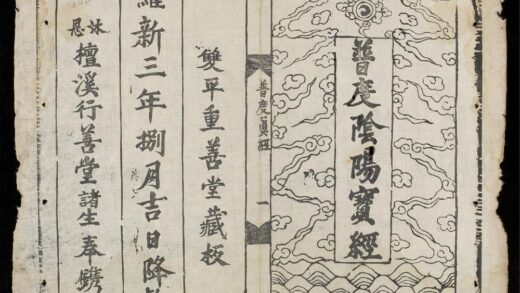 普度陰陽寶經
普度眞經 一
雙平重善堂藏板
維新三年捌月吉日降
沐恩 檀溪行善堂諸生奉鐫